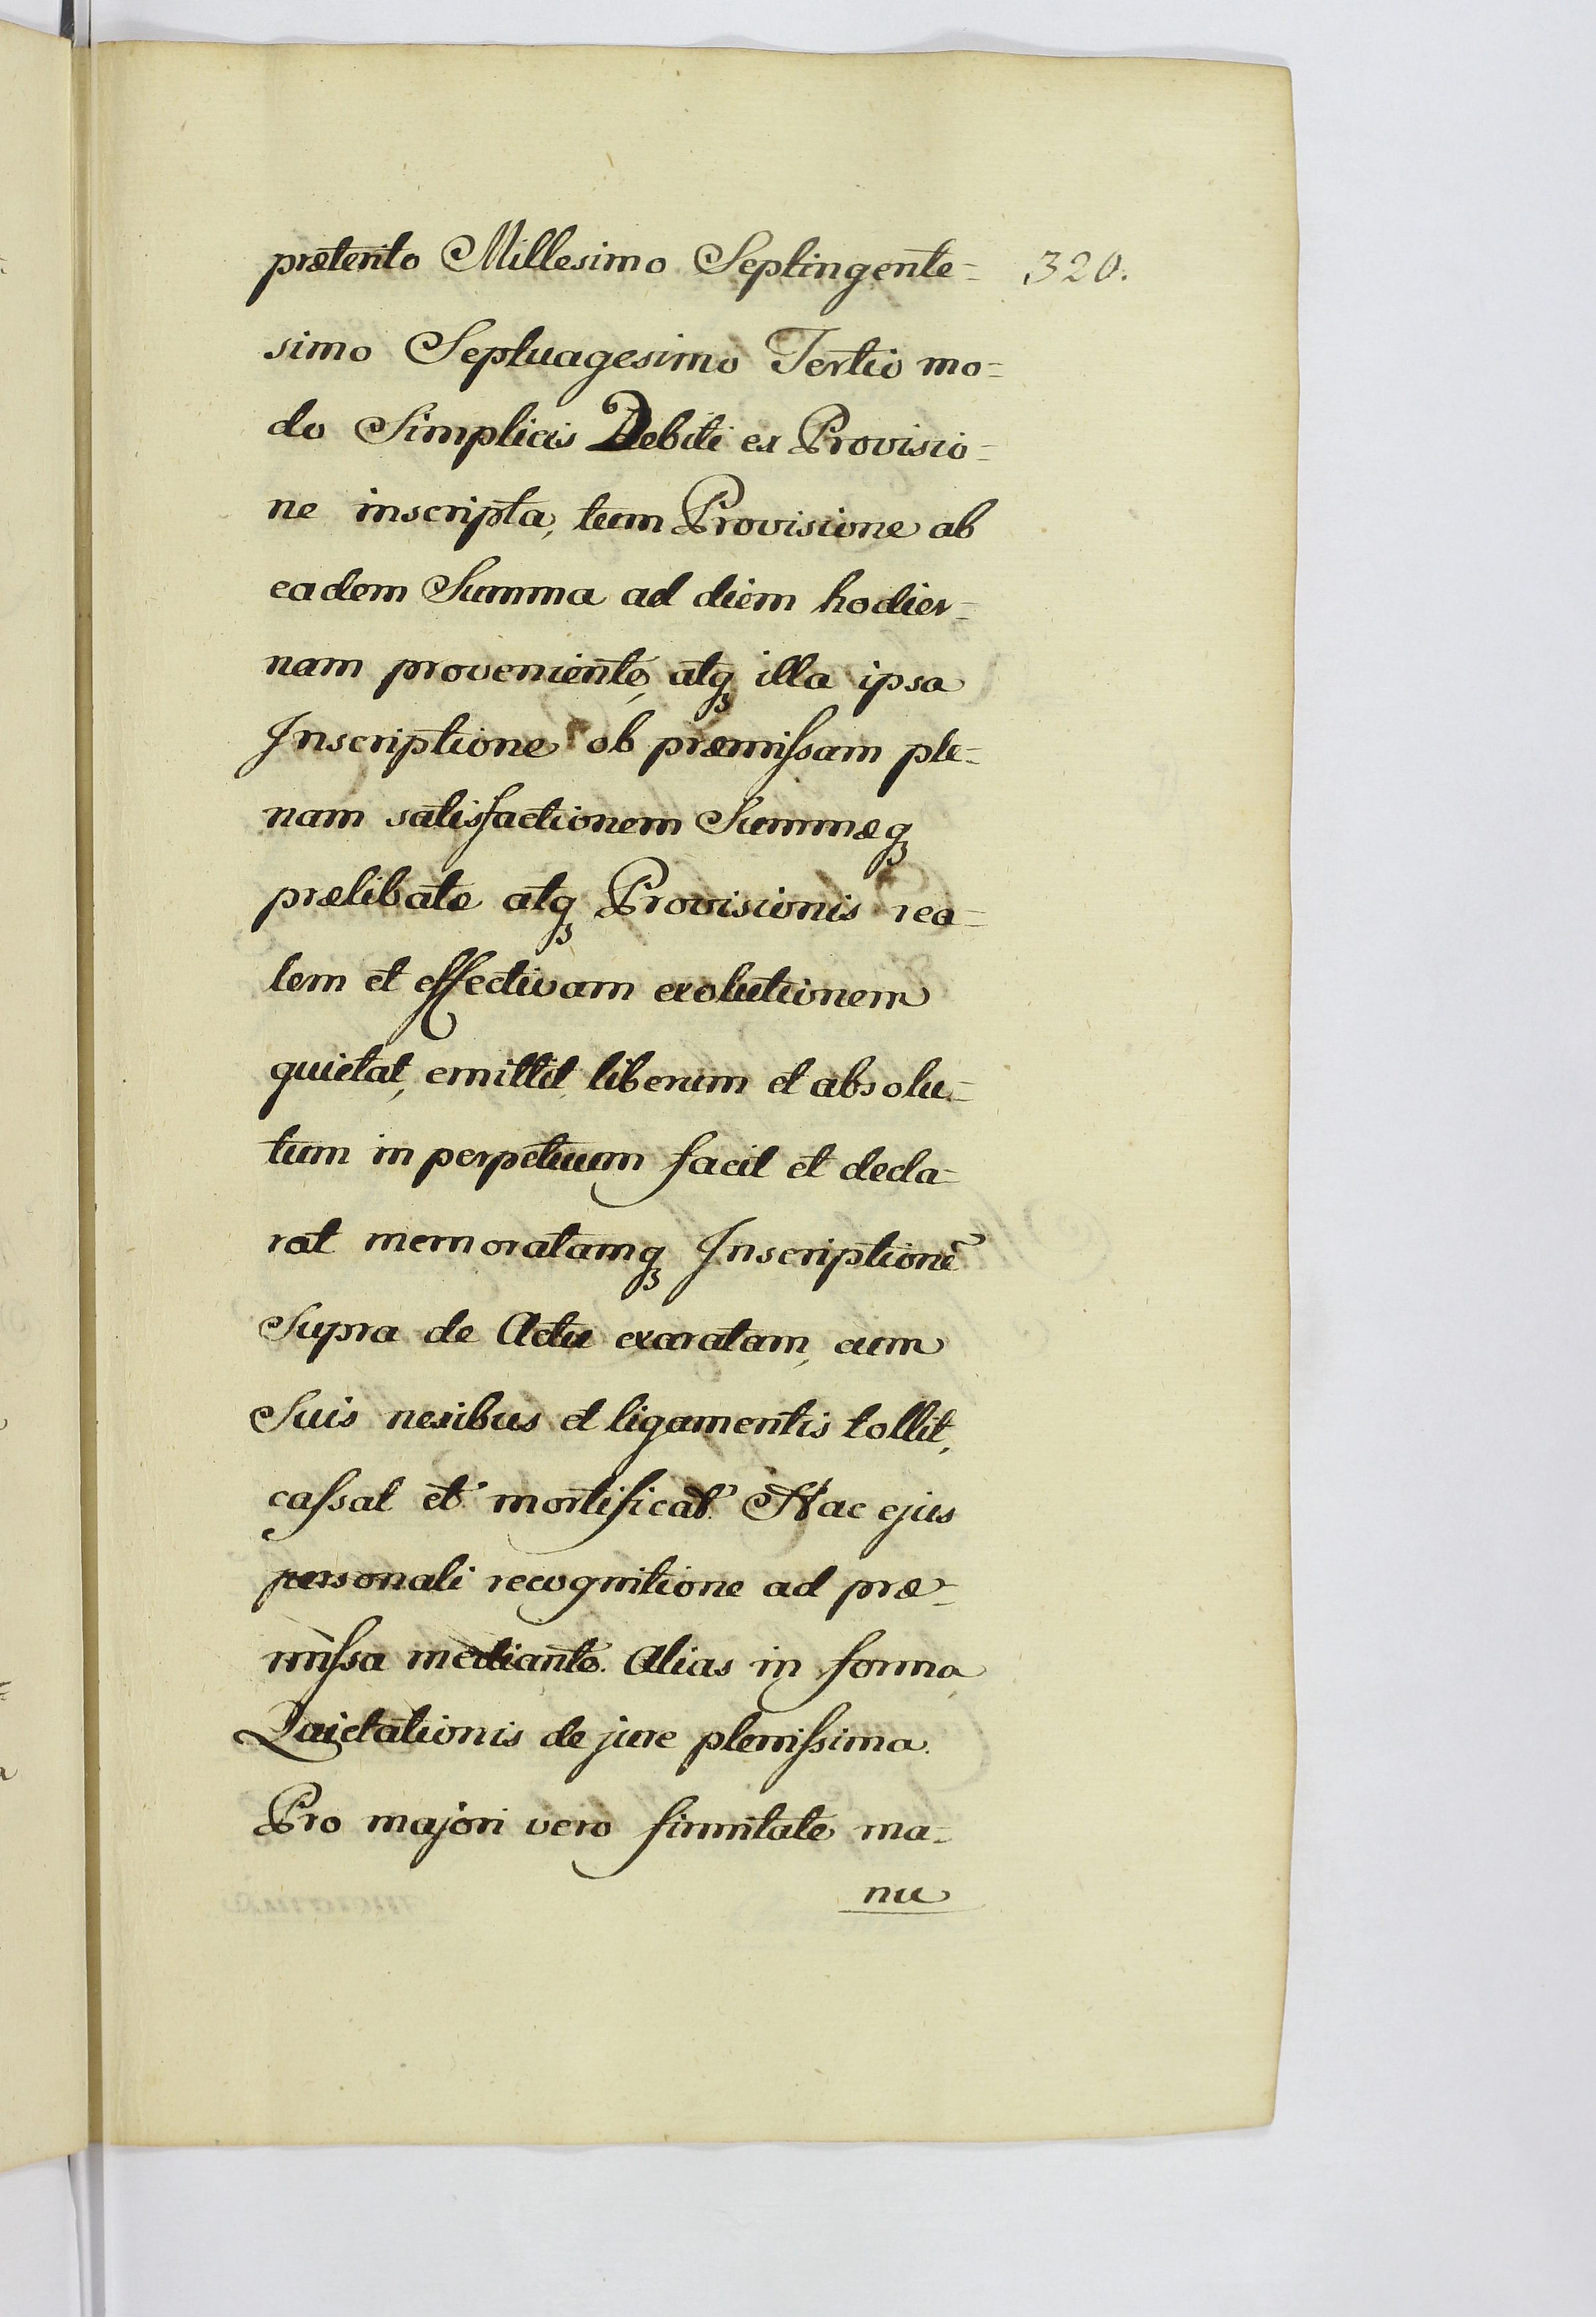 præterito Millesimo Septingente= 320.
simo Septuagesimo Tertio mo=
do Simplicis Debiti ex Provisio=
ne inscripta, tum Provisione ab
eadem Summa ad diem hodier=
nam proveniente, atqꝫ illa ipsa
Inscriptione ob præmiſsam ple=
nam satisfactionem Summæqꝫ
prælibatæ atqꝫ Provisionis rea=
lem et effectivam exolutionem
quietat, emittit liberum et absolu=
tum in perpetuum facit et decla=
rat memoratamqꝫ Inscriptionē
Supra de Actu exaratam, cum
Suis nexibus et ligamentis tollit,
caſsat et mortificat. Hac ejus
personali recognitione ad præ=
miſsa mediante. Alias in forma
Quietationis de jure pleniſsima.
Pro majori vero firmitate ma=
nu